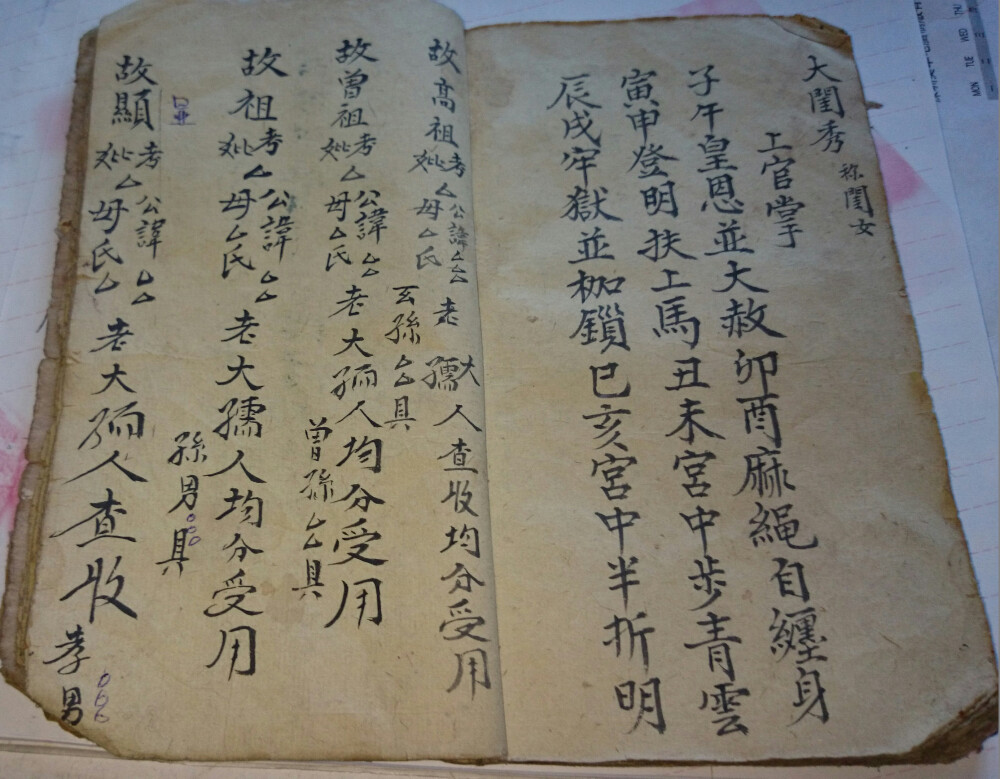 大閨秀 称閨女
上官掌
子午皇恩並大赦卯酉麻繩自纏身
寅申登明扶上馬丑未宮中步青雲
辰戌牢獄並枷鎖巳亥宮中半折明
故高祖考妣厶公諱厶厶母厶氏老大孺人查收均分受用
玄孫厶具
故曾祖考妣厶公諱厶厶母厶氏老大孺人均分受用
曾孫厶具
故祖考妣厶公諱厶厶母厶氏厶老大孺人均分受用
孫男具
故顯考妣厶公諱厶厶母氏厶老大孺人查收
孝男
MON TUE WED THU